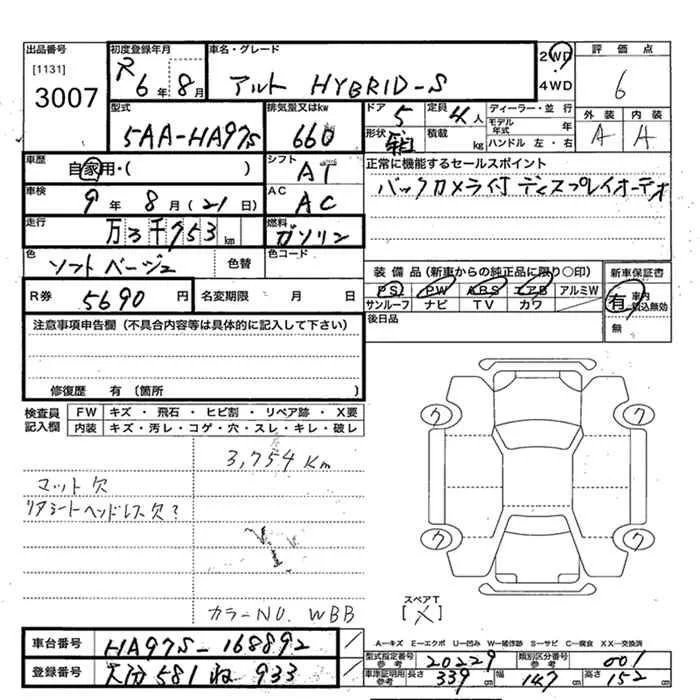 出品番号
[1131]
3007
初度登録年月
R 6年 8月
車名・グレード
アルト HYBRID-S
2WD
4WD
評価点
6
型式
5AA-HA97S
排気量又はkw
660
ドア
5
定員
4人
形状
箱
積載
kg
ディーラー・並行
モデル年式 年
ハンドル 左・右
外装
A
内装
A
車歴
自家用・( )
シフト
AT
正常に機能するセールスポイント
バックカメラ付 ディスプレイオーディオ
車検
9年 8月(21日)
AC
AC
走行
万3千753km
燃料
ガソリン
色
ソフトベージュ
色替
色コード
装備品(新車からの純正品に限り○印)
PS PW ABS エアB アルミW
サンルーフ ナビ TV カワ
新車保証書
有
無
R券
5690円
名変期限 月 日
後日品
注意事項申告欄(不具合内容等は具体的に記入して下さい)
修復歴 有(箇所 )
検査員記入欄
FW キズ・飛石・ヒビ割・リペア跡・X要
内装 キズ・汚レ・コゲ・穴・スレ・キレ・破レ
3,754 Km
マット欠
リアシートヘッドレス欠?
カラーNO. WBB
7
7
7
7
スペアT
[×]
A−キズ E−エクボ U−凹み W−補修跡 S−サビ C−腐食 XX−交換済
車台番号
HA97S-168892
登録番号
大分 581 ね 933
型式指定番号 参考
20229
類別区分番号 参考
001
車庫証明用 参考
長さ 339cm
幅 147cm
高さ 152cm